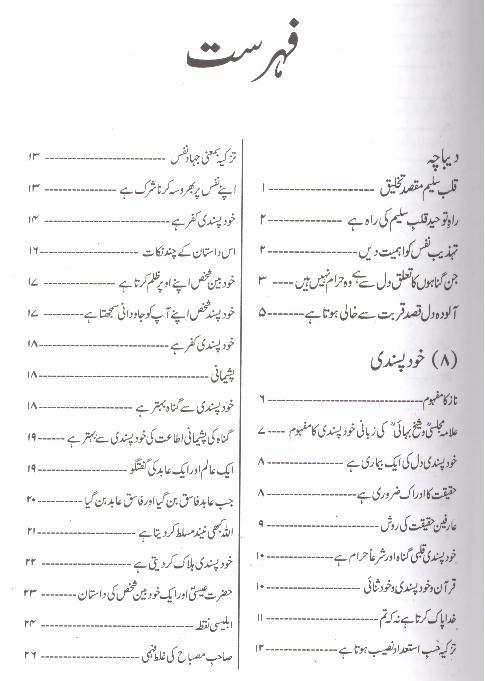 فہرست
دیباچہ
قلب سلیم مقصد تخلیق ---------------- ۱
راہِ توحید قلبِ سلیم کی راہ ہے ---------------- ۲
تہذیب نفس کو اہمیت دیں ---------------- ۲
جن گناہوں کا تعلق دل سے ہے وہ حرام نہیں ہیں ---- ۳
آلودہ دل قصد قربت سے خالی ہوتا ہے -------- ۵
(۸) خود پسندی
ناز کا مفہوم ---------------- ۶
علامہ مجلسیؒ و شیخ بہائیؒ کی زبانی خود پسندی کا مفہوم ---- ۷
خود پسندی دل کی ایک بیماری ہے ---------------- ۸
حقیقت کا ادراک ضروری ہے ---------------- ۸
عارفین حقیقت کی روش ---------------- ۹
خود پسندی قلبی گناہ اور شرعاً حرام ہے ---------------- ۱۰
قرآن و خود پسندی و خود ثنائی ---------------- ۱۰
خدا پاک کرتا ہے نہ کہ تم ---------------- ۱۱
تزکیہ حسب استعداد نصیب ہوتا ہے ---------------- ۱۲
تزکیہ بمعنی جہاد نفس ---------------- ۱۳
اپنے نفس پر بھروسہ کرنا شرک ہے ---------------- ۱۳
خود پسندی کفر ہے ---------------- ۱۴
اس داستان کے چند نکات ---------------- ۱۶
خود بین شخص اپنے اوپر ظلم کرتا ہے ---------------- ۱۷
خود پسند شخص اپنے آپ کو جاودانی سمجھتا ہے -------- ۱۷
خود پسندی کفر ہے ---------------- ۱۸
پشیمانی ---------------- ۱۸
خود پسندی سے گناہ بہتر ہے ---------------- ۱۸
گناہ کی پشیمانی اطاعت کی خود پسندی سے بہتر ہے ---- ۱۹
ایک عالم اور ایک عابد کی گفتگو ---------------- ۱۹
جب عابد فاسق بن گیا اور فاسق عابد بن گیا -------- ۲۰
اللہ بھی نیند مسلط کر دیتا ہے ---------------- ۲۱
خود پسندی ہلاک کر دیتی ہے ---------------- ۲۲
حضرت عیسیٰؑ اور ایک خود بین شخص کی داستان -------- ۲۳
ابلیسی نقطہ ---------------- ۲۴
صاحبِ مصباح کی غلط فہمی ---------------- ۲۶